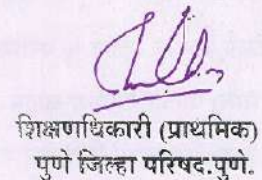 शिक्षणाधिकारी (प्राथमिक)
पुणे जिल्हा परिषद.पुणे.